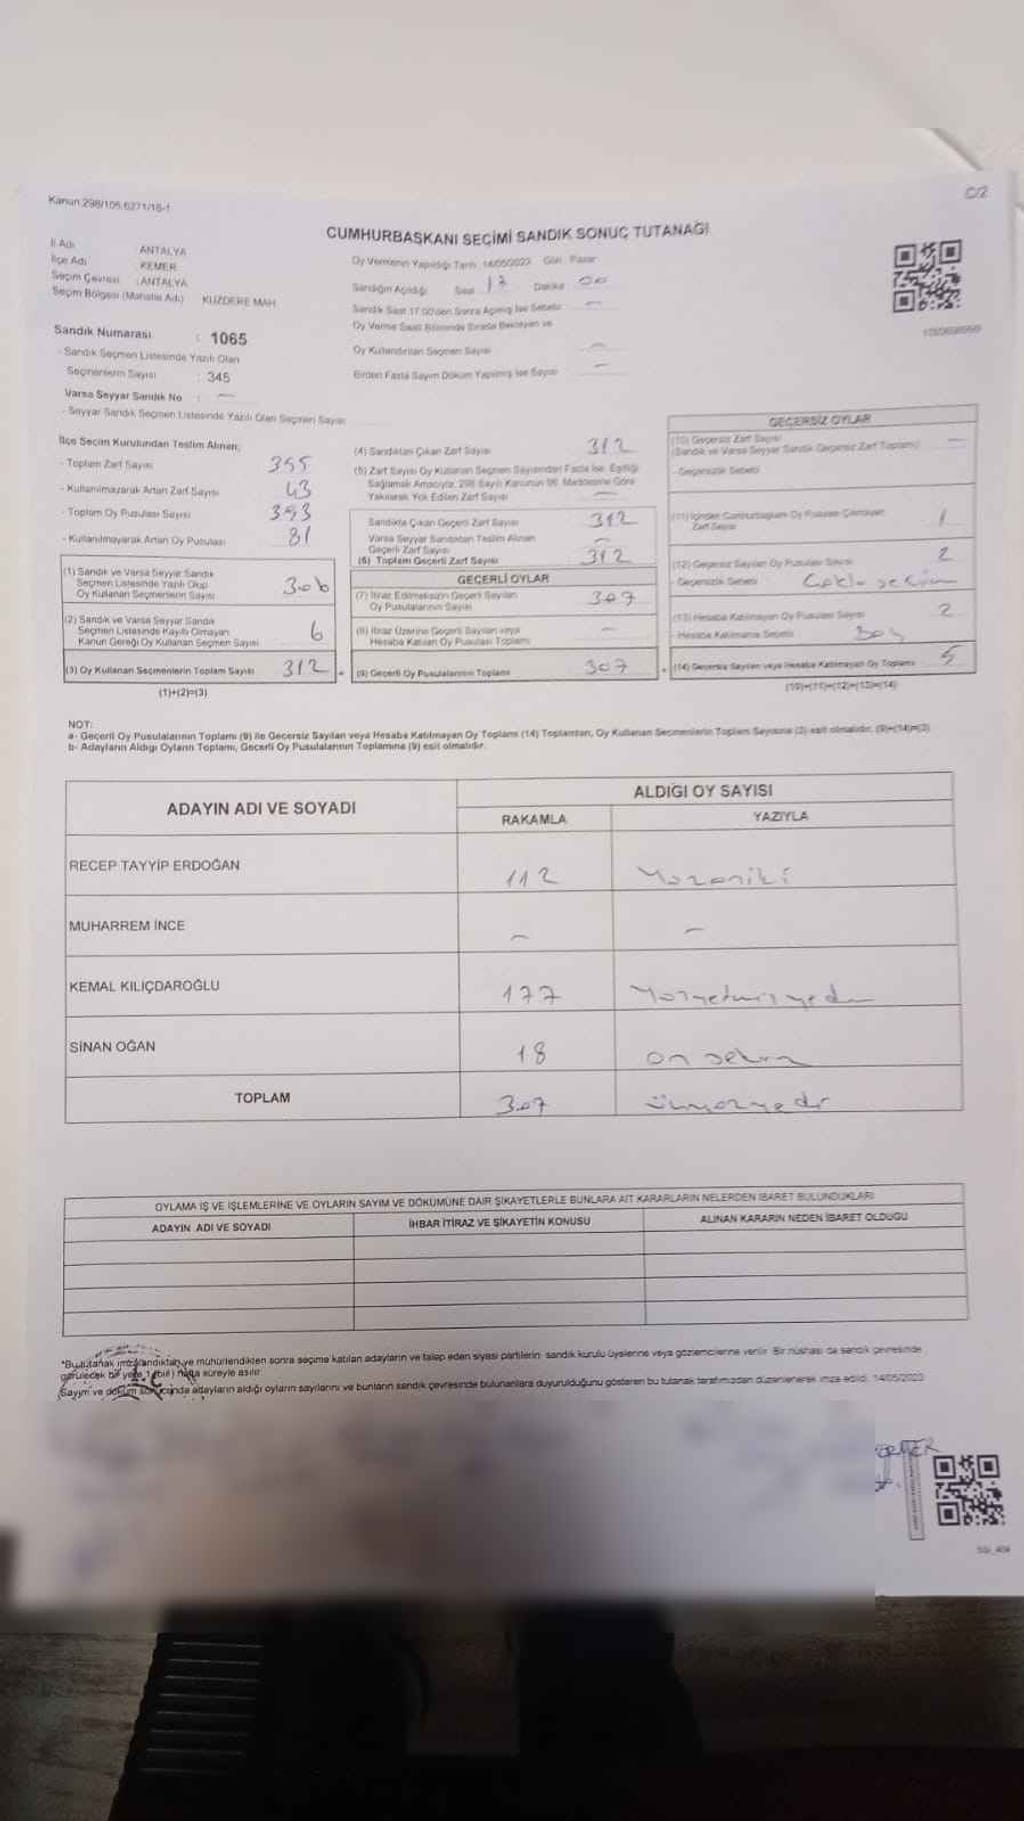 Kanun:298/105,6271/18-1
C/2
CUMHURBAŞKANI SEÇİMİ SANDIK SONUÇ TUTANAĞI
İl Adı ANTALYA
İlçe Adı KEMER
Seçim Çevresi :ANTALYA
Seçim Bölgesi (Mahalle Adı) KUZDERE MAH.
Oy Vermenin Yapıldığı Tarih 14/05/2023 Gün Pazar
Sandığın Açıldığı Saat 17 Dakika 00
Sandık Saat 17:00'den Sonra Açılmış İse Sebebi —
Oy Verme Saati Bitiminde Sırada Bekleyen ve
Oy Kullandırılan Seçmen Sayısı —
Birden Fazla Sayım Döküm Yapılmış İse Sayısı —
Sandık Numarası : 1065
- Sandık Seçmen Listesinde Yazılı Olan
Seçmenlerin Sayısı : 345
Varsa Seyyar Sandık No : —
- Seyyar Sandık Seçmen Listesinde Yazılı Olan Seçmen Sayısı
İlçe Seçim Kurulundan Teslim Alınan;
- Toplam Zarf Sayısı 355
- Kullanılmayarak Artan Zarf Sayısı 43
- Toplam Oy Pusulası Sayısı 393
- Kullanılmayarak Artan Oy Pusulası 81
(1) Sandık ve Varsa Seyyar Sandık
Seçmen Listesinde Yazılı Olup
Oy Kullanan Seçmenlerin Sayısı 306
(2) Sandık ve Varsa Seyyar Sandık
Seçmen Listesinde Kayıtlı Olmayan
Kanun Gereği Oy Kullanan Seçmen Sayısı 6
(3) Oy Kullanan Seçmenlerin Toplam Sayısı 312
(1)+(2)=(3)
(4) Sandıktan Çıkan Zarf Sayısı 312
(5) Zarf Sayısı Oy Kullanan Seçmen Sayısından Fazla İse, Eşitliği
Sağlamak Amacıyla, 298 Sayılı Kanunun 98. Maddesine Göre
Yakılarak Yok Edilen Zarf Sayısı —
Sandıkta Çıkan Geçerli Zarf Sayısı 312
Varsa Seyyar Sandıktan Teslim Alınan
Geçerli Zarf Sayısı —
(6) Toplam Geçerli Zarf Sayısı 312
GEÇERLİ OYLAR
(7) İtiraz Edilmeksizin Geçerli Sayılan
Oy Pusulalarının Sayısı 307
(8) İtiraz Üzerine Geçerli Sayılan veya
Hesaba Katılan Oy Pusulası Toplamı —
(9) Geçerli Oy Pusulalarının Toplamı 307
GEÇERSİZ OYLAR
(10) Geçersiz Zarf Sayısı
(Sandık ve Varsa Seyyar Sandık Geçersiz Zarf Toplamı) —
- Geçersizlik Sebebi
(11) İçinden Cumhurbaşkanı Oy Pusulası Çıkmayan
Zarf Sayısı 1
(12) Geçersiz Sayılan Oy Pusulası Sayısı 2
- Geçersizlik Sebebi Çoklu seçim
(13) Hesaba Katılmayan Oy Pusulası Sayısı 2
- Hesaba Katılmama Sebebi Boş
(14) Geçersiz Sayılan veya Hesaba Katılmayan Oy Toplamı 5
(10)+(11)+(12)+(13)=(14)
NOT:
a- Geçerli Oy Pusulalarının Toplamı (9) ile Geçersiz Sayılan veya Hesaba Katılmayan Oy Toplamı (14) Toplamları, Oy Kullanan Seçmenlerin Toplam Sayısına (3) eşit olmalıdır. (9)+(14)=(3)
b- Adayların Aldığı Oyların Toplamı, Geçerli Oy Pusulalarının Toplamına (9) eşit olmalıdır.
ADAYIN ADI VE SOYADI
ALDIĞI OY SAYISI
RAKAMLA YAZIYLA
RECEP TAYYİP ERDOĞAN 112 Yüzoniki
MUHARREM İNCE — —
KEMAL KILIÇDAROĞLU 177 Yüzyetmişyedi
SİNAN OĞAN 18 on sekiz
TOPLAM 307 üçyüzyedi
OYLAMA İŞ VE İŞLEMLERİNE VE OYLARIN SAYIM VE DÖKÜMÜNE DAİR ŞİKAYETLERLE BUNLARA AİT KARARLARIN NELERDEN İBARET BULUNDUKLARI
ADAYIN ADI VE SOYADI İHBAR İTİRAZ VE ŞİKAYETİN KONUSU ALINAN KARARIN NEDEN İBARET OLDUĞU
*Bu tutanak imzalandıktan ve mühürlendikten sonra seçime katılan adayların ve talep eden siyasi partilerin sandık kurulu üyelerine veya gözlemcilerine verilir. Bir nüshası da sandık çevresinde
görülecek bir yere 1 (bir) hafta süreyle asılır.
Sayım ve döküm sonucunda adayların aldığı oyların sayılarını ve bunların sandık çevresinde bulunanlara duyurulduğunu gösteren bu tutanak tarafımızdan düzenlenerek imza edildi. 14/05/2023